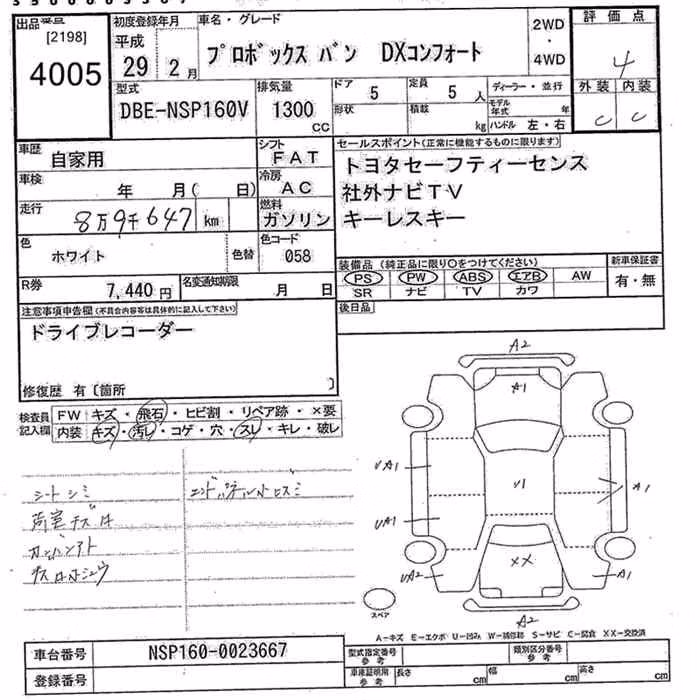 出品番号
[2198]
4005
初度登録年月
平成
29 2 月
車名・グレード
プロボックス バン DXコンフォート
2WD
・
4WD
評価点
4
外装 内装
C C
型式
DBE-NSP160V
排気量
1300
CC
ドア 5
定員 5 人
形状
積載 kg
ディーラー・並行
モデル年式 年
ハンドル 左・右
車歴
自家用
シフト
FAT
車検
年 月( 日)
冷房
AC
走行
8万9千647 km
燃料
ガソリン
色
ホワイト
色替
色コード
058
R券
7,440円
名変通知期限
月 日
セールスポイント(正常に機能するものに限ります)
トヨタセーフティーセンス
社外ナビTV
キーレスキー
装備品 (純正品に限り○をつけてください)
PS PW ABS エアB AW
SR ナビ TV カワ
新車保証書
有・無
後日品
注意事項申告欄(不具合内容等は具体的に記入して下さい)
ドライブレコーダー
修復歴 有〔箇所 〕
検査員
記入欄
FW キズ・飛石・ヒビ割・リペア跡・×要
内装 キズ・汚レ・コゲ・穴・スレ・キレ・破レ
シートシミ
荷室キズ
A2
A1
UA1
U1
A1
UA1
XX
UA2
A1
A2
スペア
A-キズ E-エクボ U-凹み W-補修跡 S-サビ C-腐食 XX-交換済
車台番号
NSP160-0023667
登録番号
型式指定番号
参考
類別区分番号
参考
車庫証明用
参考
長さ cm
幅 cm
高さ cm